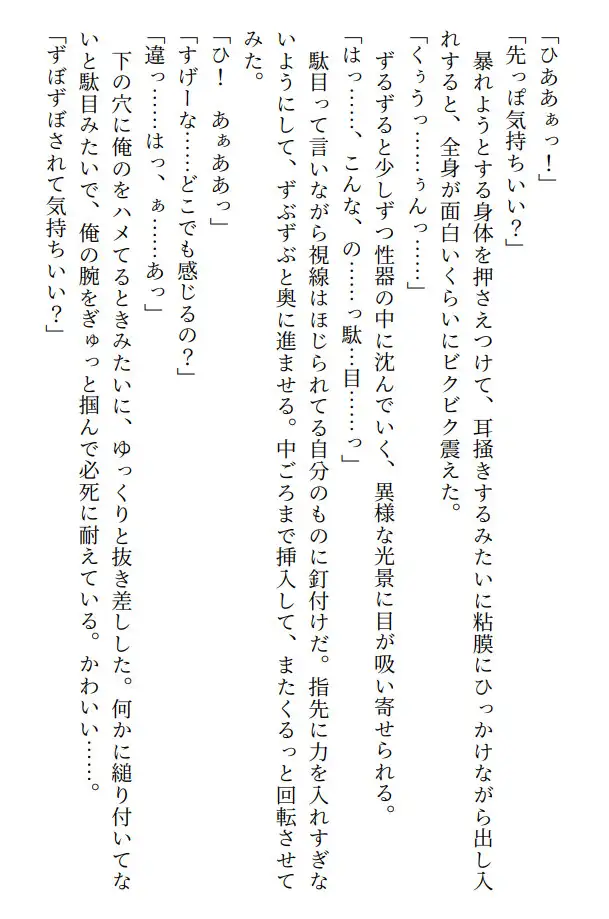 「ひああぁっ！」
「先っぽ気持ちいい？」
　暴れようとする身体を押さえつけて、耳掻きするみたいに粘膜にひっかけながら出し入
れすると、全身が面白いくらいにビクビク震えた。
「くぅうっ……ぅんっ……」
　ずるずると少しずつ性器の中に沈んでいく、異様な光景に目が吸い寄せられる。
「はっ……、こんな、の……っ駄…目……っ」
　駄目って言いながら視線はほじられてる自分のものに釘付けだ。指先に力を入れすぎな
いようにして、ずぶずぶと奥に進ませる。中ごろまで挿入して、またくるっと回転させて
みた。
「ひ！　あぁああっ」
「すげーな……どこでも感じるの？」
「違っ……はっ、ぁ……あっ」
　下の穴に俺のをハメてるときみたいに、ゆっくりと抜き差しした。何かに縋り付いてな
いと駄目みたいで、俺の腕をぎゅっと掴んで必死に耐えている。かわいい……。
「ずぼずぼされて気持ちいい？」